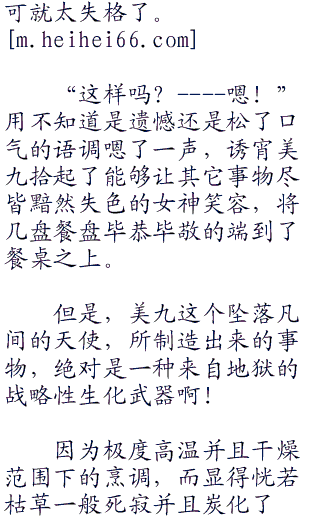 可就太失格了。
[m.heihei66.com]
“这样吗？----嗯！”
用不知道是遗憾还是松了口
气的语调嗯了一声，诱宵美
九拾起了能够让其它事物尽
皆黯然失色的女神笑容，将
几盘餐盘毕恭毕敬的端到了
餐桌之上。
但是，美九这个坠落凡
间的天使，所制造出来的事
物，绝对是一种来自地狱的
战略性生化武器啊！
因为极度高温并且干燥
范围下的烹调，而显得恍若
枯草一般死寂并且炭化了